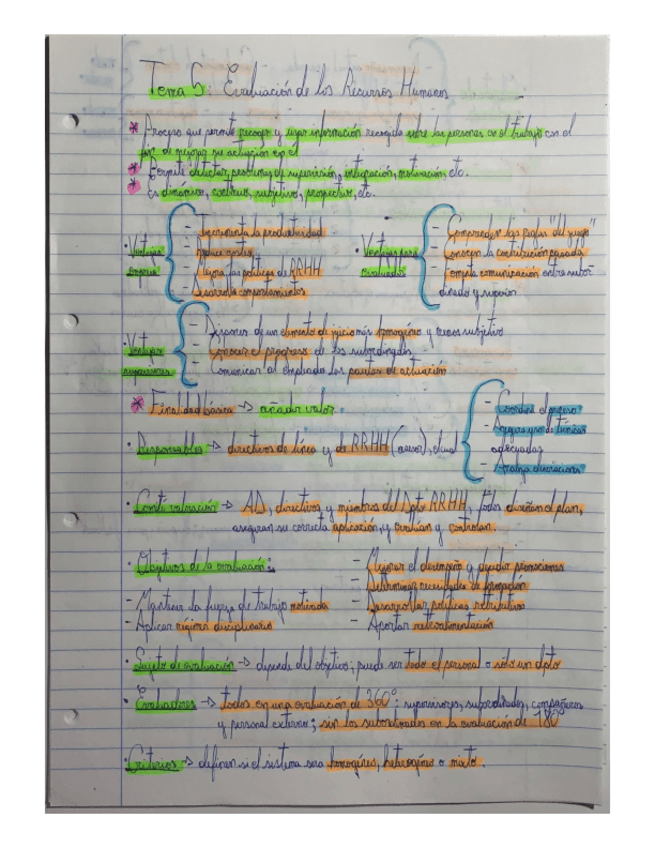 Tema 5: Evaluación de los Recursos Humanos
* Proceso que permite recoger y usar información recogida sobre las personas en el trabajo con el
fin de mejorar su actuación en él
* Permite detectar problemas de supervisión, integración, motivación, etc.
* Es dinámico, continuo, subjetivo, prospectivo, etc.
· Ventajas empresa
- Incrementa la productividad
- Reduce costes
- Mejora las políticas de RRHH
- Desarrolla comportamientos
· Ventajas para evaluado
- Comprender las reglas "del juego"
- Conocen la contribución pasada
- Fomenta comunicación entre subor-
dinado y superior
· Ventajas supervisores
- Disponer de un elemento de juicio más homogéneo y menos subjetivo
- Conocer el progreso de los subordinados
- Comunicar al empleado las pautas de actuación
* Finalidad básica -> añadir valor.
· Responsables -> directivos de línea y de RRHH (asesor), el cual
- Coordina el proceso
- Asegura uso de técnicas
adecuadas
- Analiza desviaciones
· Comité valoración -> AD, directivos y miembros del Dpto RRHH, todos diseñan el plan,
aseguran su correcta aplicación, y evalúan y controlan.
· Objetivos de la evaluación:
- Mantener la fuerza de trabajo motivada
- Aplicar régimen disciplinario
- Mejorar el desempeño y decidir promociones
- Determinar necesidades de formación
- Desarrollar políticas retributivas
- Aportar retroalimentación
· Sujeto de evaluación -> depende del objetivo; puede ser todo el personal o sólo un dpto
· Evaluadores -> todos en una evaluación de 360°: supervisores, subordinados, compañeros
y personal externo; sin los subordinados en la evaluación de 180°
· Criterios -> definen si el sistema será homogéneo, heterogéneo o mixto.